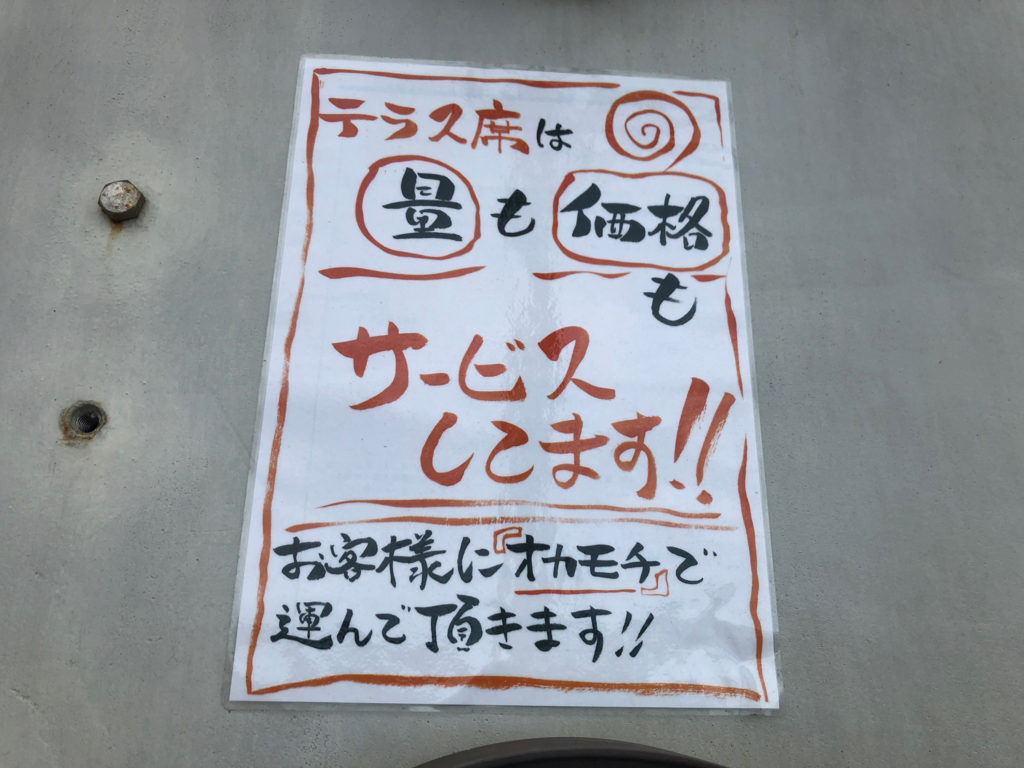 テラス席は
量も価格
も
サービス
してます!!
お客様に『オカモチ』で
運んで頂きます!!